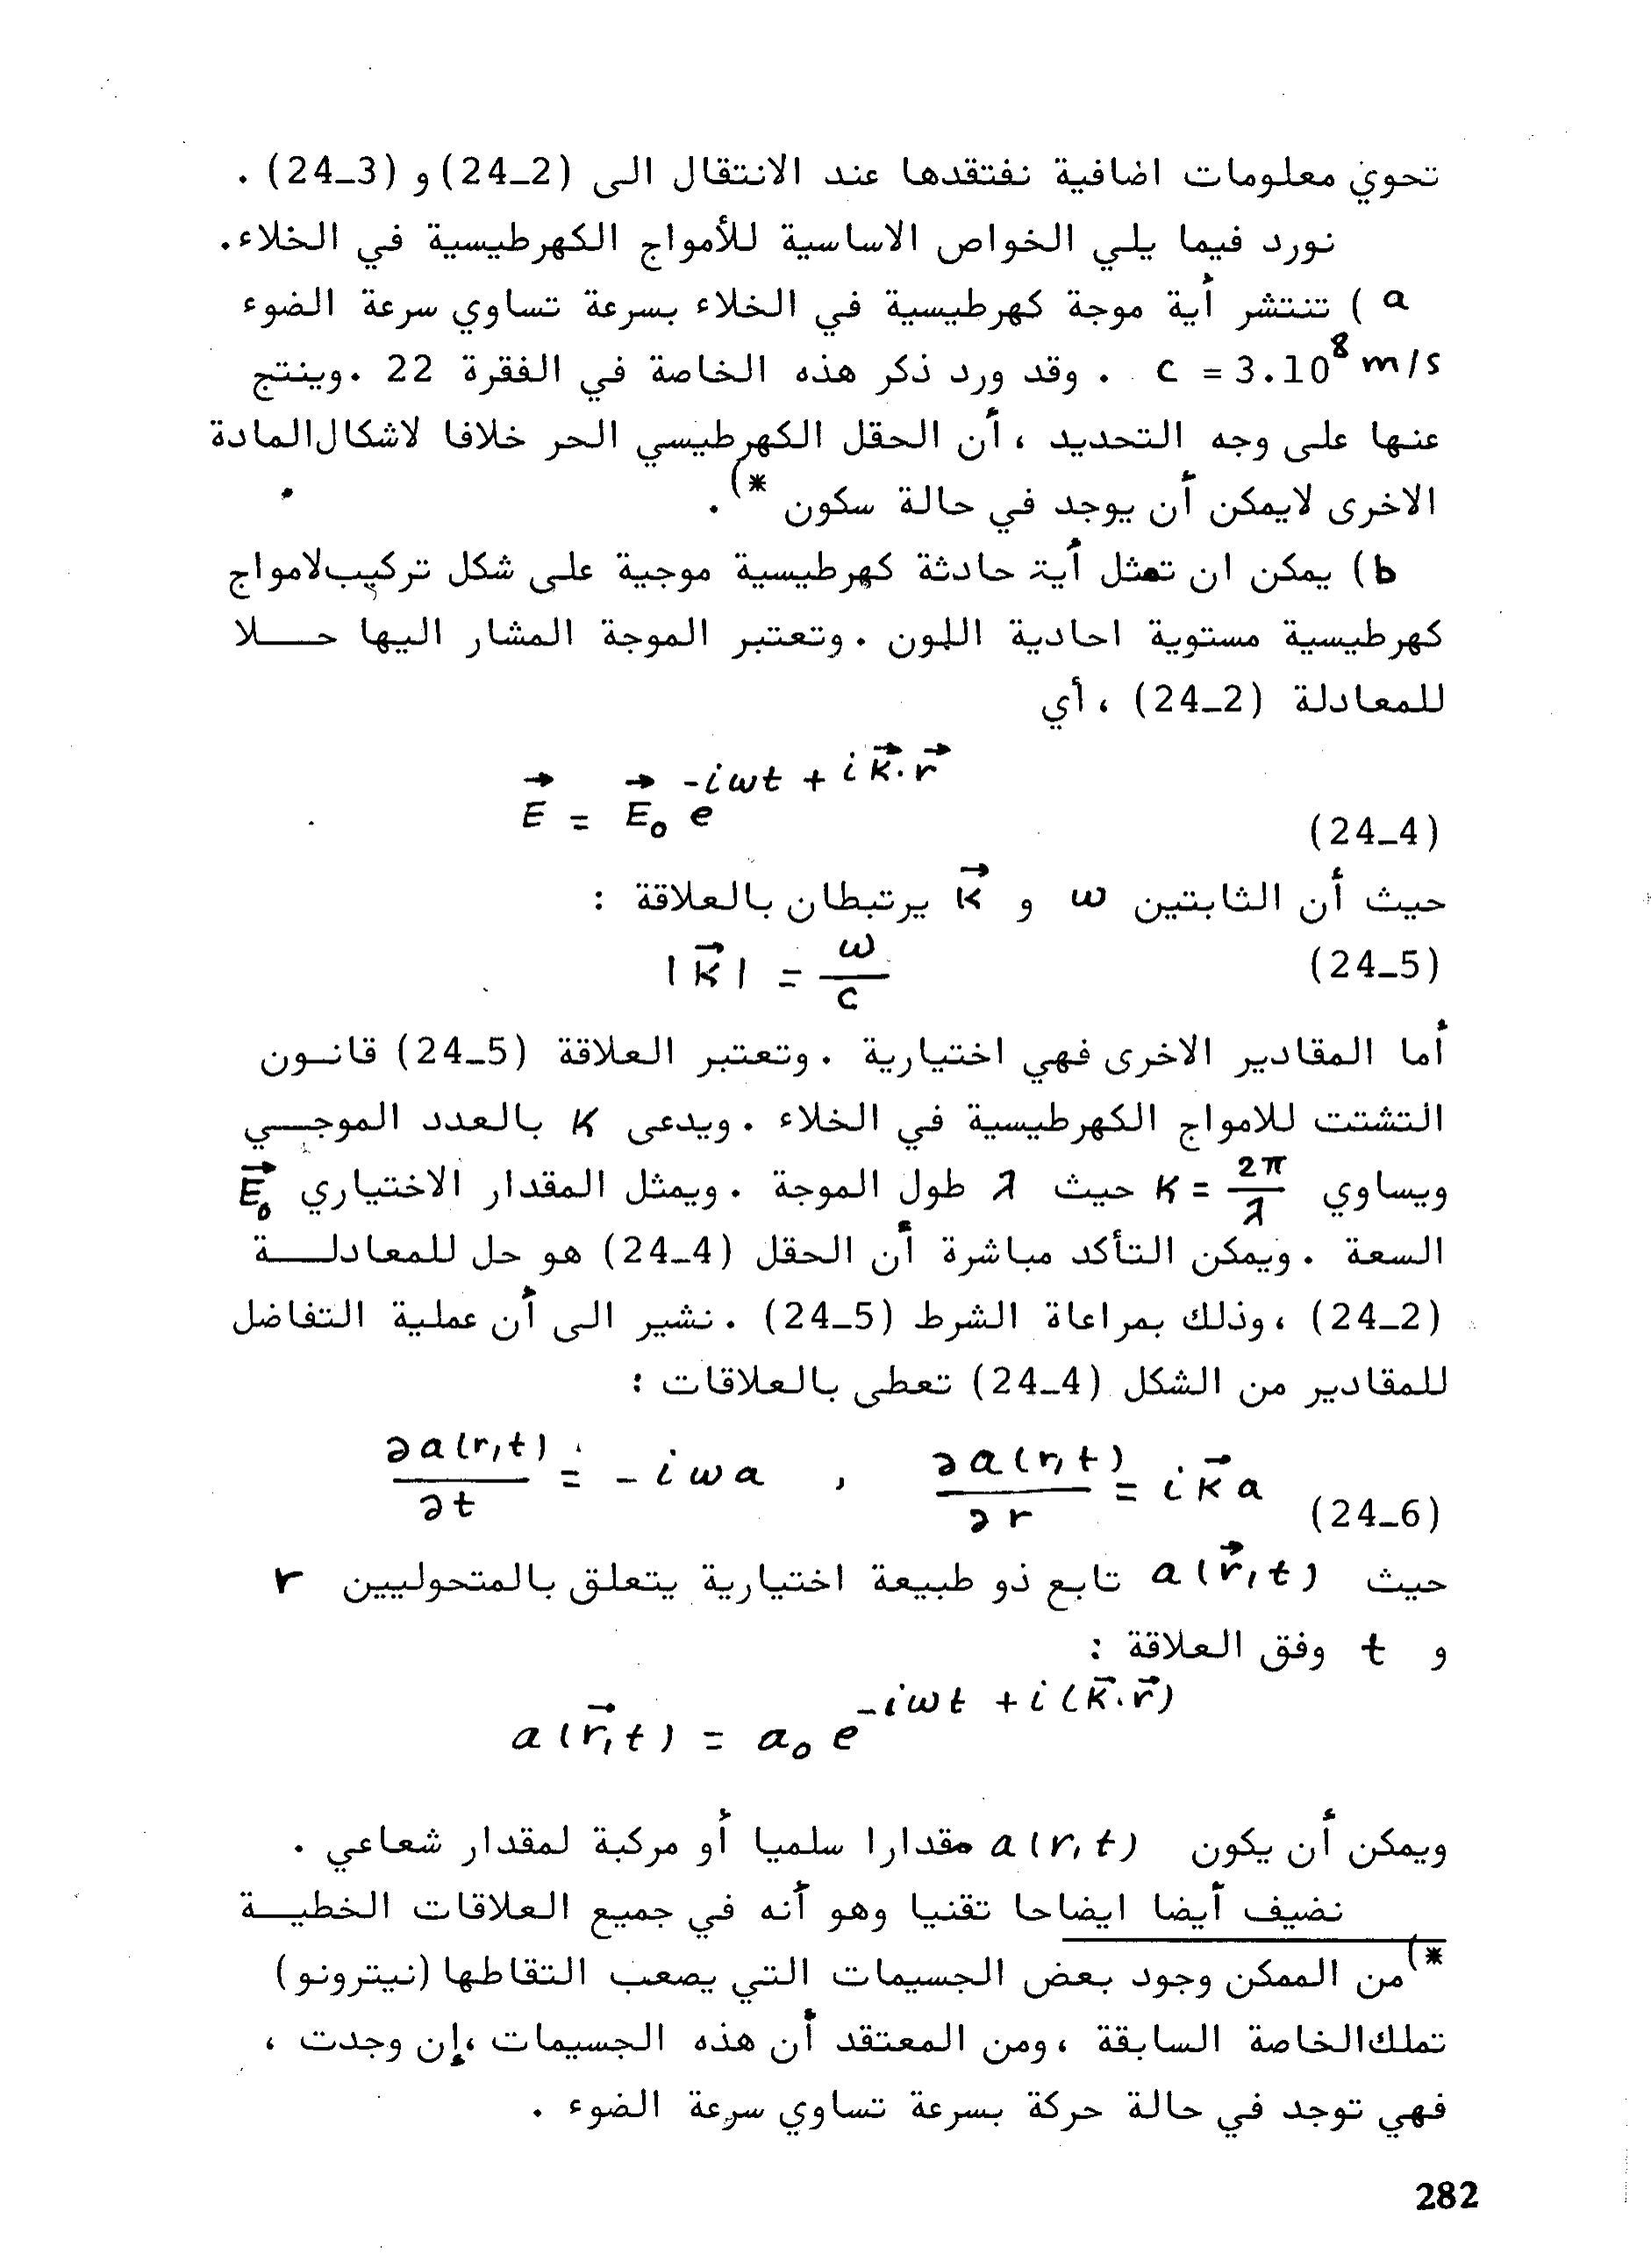 تحوي معلومات اضافية نفتقدها عند الانتقال الى (24_2) و (24_3) .
نورد فيما يلي الخواص الاساسية للأمواج الكهرطيسية في الخلاء.
a ) تنتشر أية موجة كهرطيسية في الخلاء بسرعة تساوي سرعة الضوء
c = 3.10⁸ m/s . وقد ورد ذكر هذه الخاصة في الفقرة 22 .وينتج
عنها على وجه التحديد ، أن الحقل الكهرطيسي الحر خلافا لاشكال المادة
الاخرى لايمكن أن يوجد في حالة سكون *) .
b) يمكن ان تمثل أية حادثة كهرطيسية موجية على شكل تركيب لامواج
كهرطيسية مستوية احادية اللون . وتعتبر الموجة المشار اليها حــلا
للمعادلة (24_2) ، أي
E⃗ = E⃗₀ e^{-iωt + i k⃗.r⃗} (24_4)
حيث أن الثابتين ω و k⃗ يرتبطان بالعلاقة :
|k⃗| = ω/c (24_5)
أما المقادير الاخرى فهي اختيارية . وتعتبر العلاقة (24_5) قانـون
التشتت للامواج الكهرطيسية في الخلاء . ويدعى K بالعدد الموجــي
ويساوي K = 2π/λ حيث λ طول الموجة . ويمثل المقدار الاختياري E⃗₀
السعة . ويمكن التأكد مباشرة أن الحقل (24_4) هو حل للمعادلــة
(24_2) ، وذلك بمراعاة الشرط (24_5) . نشير الى أن عملية التفاضل
للمقادير من الشكل (24_4) تعطى بالعلاقات :
∂a(r,t)/∂t = - iωa , ∂a(r,t)/∂r = i k⃗ a (24_6)
حيث a(r⃗,t) تابع ذو طبيعة اختيارية يتعلق بالمتحوليين r
و t وفق العلاقة :
a(r⃗,t) = a₀ e^{-iωt + i(k⃗.r⃗)}
ويمكن أن يكون a(r,t) مقدارا سلميا أو مركبة لمقدار شعاعي .
نضيف أيضا ايضاحا تقنيا وهو أنه في جميع العلاقات الخطيــة
*) من الممكن وجود بعض الجسيمات التي يصعب التقاطها (نيترونو)
تملك الخاصة السابقة ، ومن المعتقد أن هذه الجسيمات ،إن وجدت ،
فهي توجد في حالة حركة بسرعة تساوي سرعة الضوء .
282